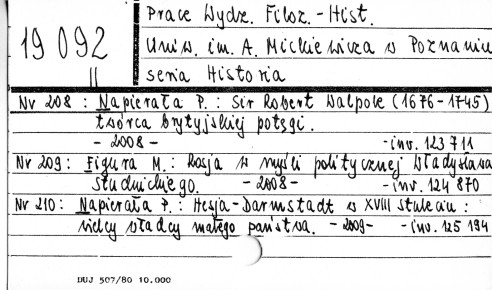 19 092
Prace Wydz. Filoz.-Hist.
Uniw. im. A. Mickiewicza w Poznaniu
seria Historia
Nr 208 : Napierała P. : Sir Robert Walpole (1676-1745)
twórca brytyjskiej potęgi.
- 2008 - - inv. 123 711
Nr 209 : Figura M. : Rosja w myśli politycznej Władysława
Studnickiego. - 2008 - - inv. 124 870
Nr 210 : Napierała P. : Hesja-Darmstadt w XVIII stuleciu :
wielcy władcy małego państwa. - 2009 - - inv. 125 194
DUJ 507/80 10.000